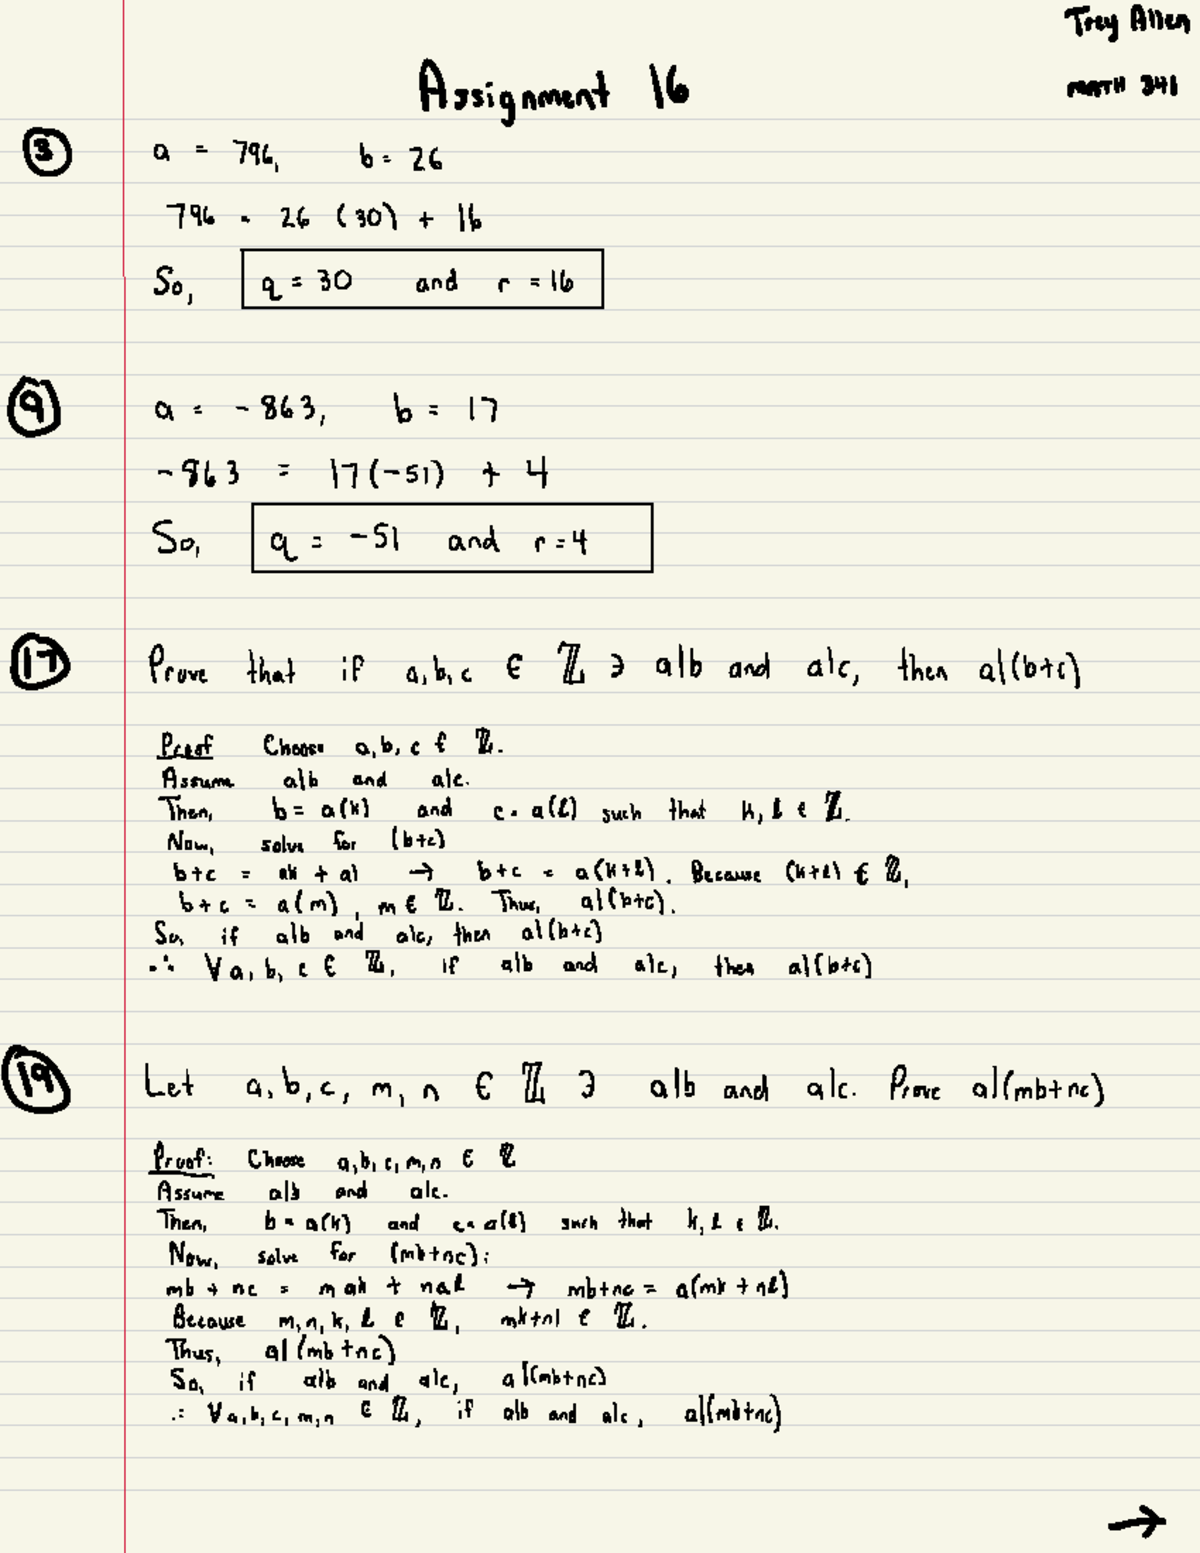 Trey Allen
Assignment 16
MATH 341
3
a = 796, b = 26
796 = 26 (30) + 16
So, q = 30 and r = 16
9
a = -863, b = 17
-863 = 17(-51) + 4
So, q = -51 and r = 4
17 Prove that if a, b, c ∈ ℤ ∋ a|b and a|c, then a|(b+c)
Proof Choose a, b, c ∈ ℤ.
Assume a|b and a|c.
Then, b = a(k) and c = a(l) such that k, l ∈ ℤ.
Now, solve for (b+c)
b+c = ak + al → b+c = a(k+l). Because (k+l) ∈ ℤ,
b+c = a(m), m ∈ ℤ. Thus, a|(b+c).
So, if a|b and a|c, then a|(b+c)
∴ ∀a, b, c ∈ ℤ, if a|b and a|c, then a|(b+c)
19 Let a, b, c, m, n ∈ ℤ ∋ a|b and a|c. Prove a|(mb+nc)
Proof: Choose a, b, c, m, n ∈ ℤ
Assume a|b and a|c.
Then, b = a(k) and c = a(l) such that k, l ∈ ℤ.
Now, solve for (mb+nc):
mb + nc = mak + nal → mb+nc = a(mk + nl)
Because m, n, k, l ∈ ℤ, mk+nl ∈ ℤ.
Thus, a|(mb+nc)
So, if a|b and a|c, a|(mb+nc)
∴ ∀a, b, c, m, n ∈ ℤ, if a|b and a|c, a|(mb+nc)
→